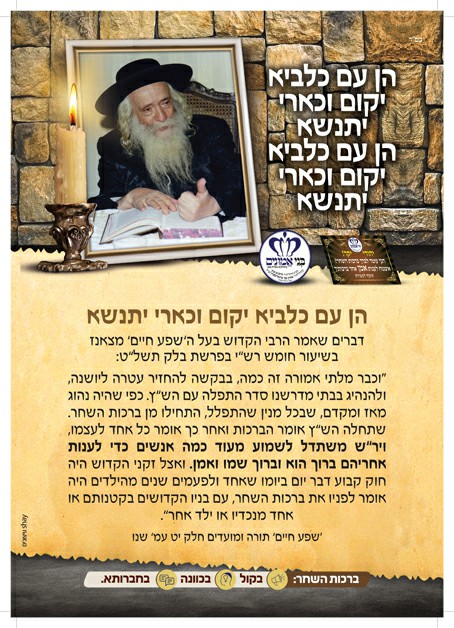 בס״ד
הן עם כלביא
יקום וכארי
יתנשא
הן עם כלביא
יקום וכארי
יתנשא
בני אמונים
הן עם כלביא יקום וכארי יתנשא
דברים שאמר הרבי הקדוש בעל ה'שפע חיים' מצאנז
בשיעור חומש רש״י בפרשת בלק תשל״ט:
״וכבר מלתי אמורה זה כמה, בבקשה להחזיר עטרה ליושנה,
ולהנהיג בבתי מדרשנו סדר התפלה עם הש״ץ. כפי שהיה נהוג
מאז ומקדם, שבכל מנין שהתפלל, התחילו מן ברכות השחר.
שתחלה הש״ץ אומר הברכות ואחר כך אומר כל אחד לעצמו,
ויר״ש משתדל לשמוע מעוד כמה אנשים כדי לענות
אחריהם ברוך הוא וברוך שמו ואמן. ואצל זקני הקדוש היה
חוק קבוע דבר יום ביומו שאחד ולפעמים שנים מהילדים היה
אומר לפניו את ברכות השחר, עם בניו הקדושים בקטנותם או
אחד מנכדיו או ילד אחר״.
'שפע חיים' תורה ומועדים חלק יט עמ' שנו
ברכות השחר: בקול בכוונה בחברותא.